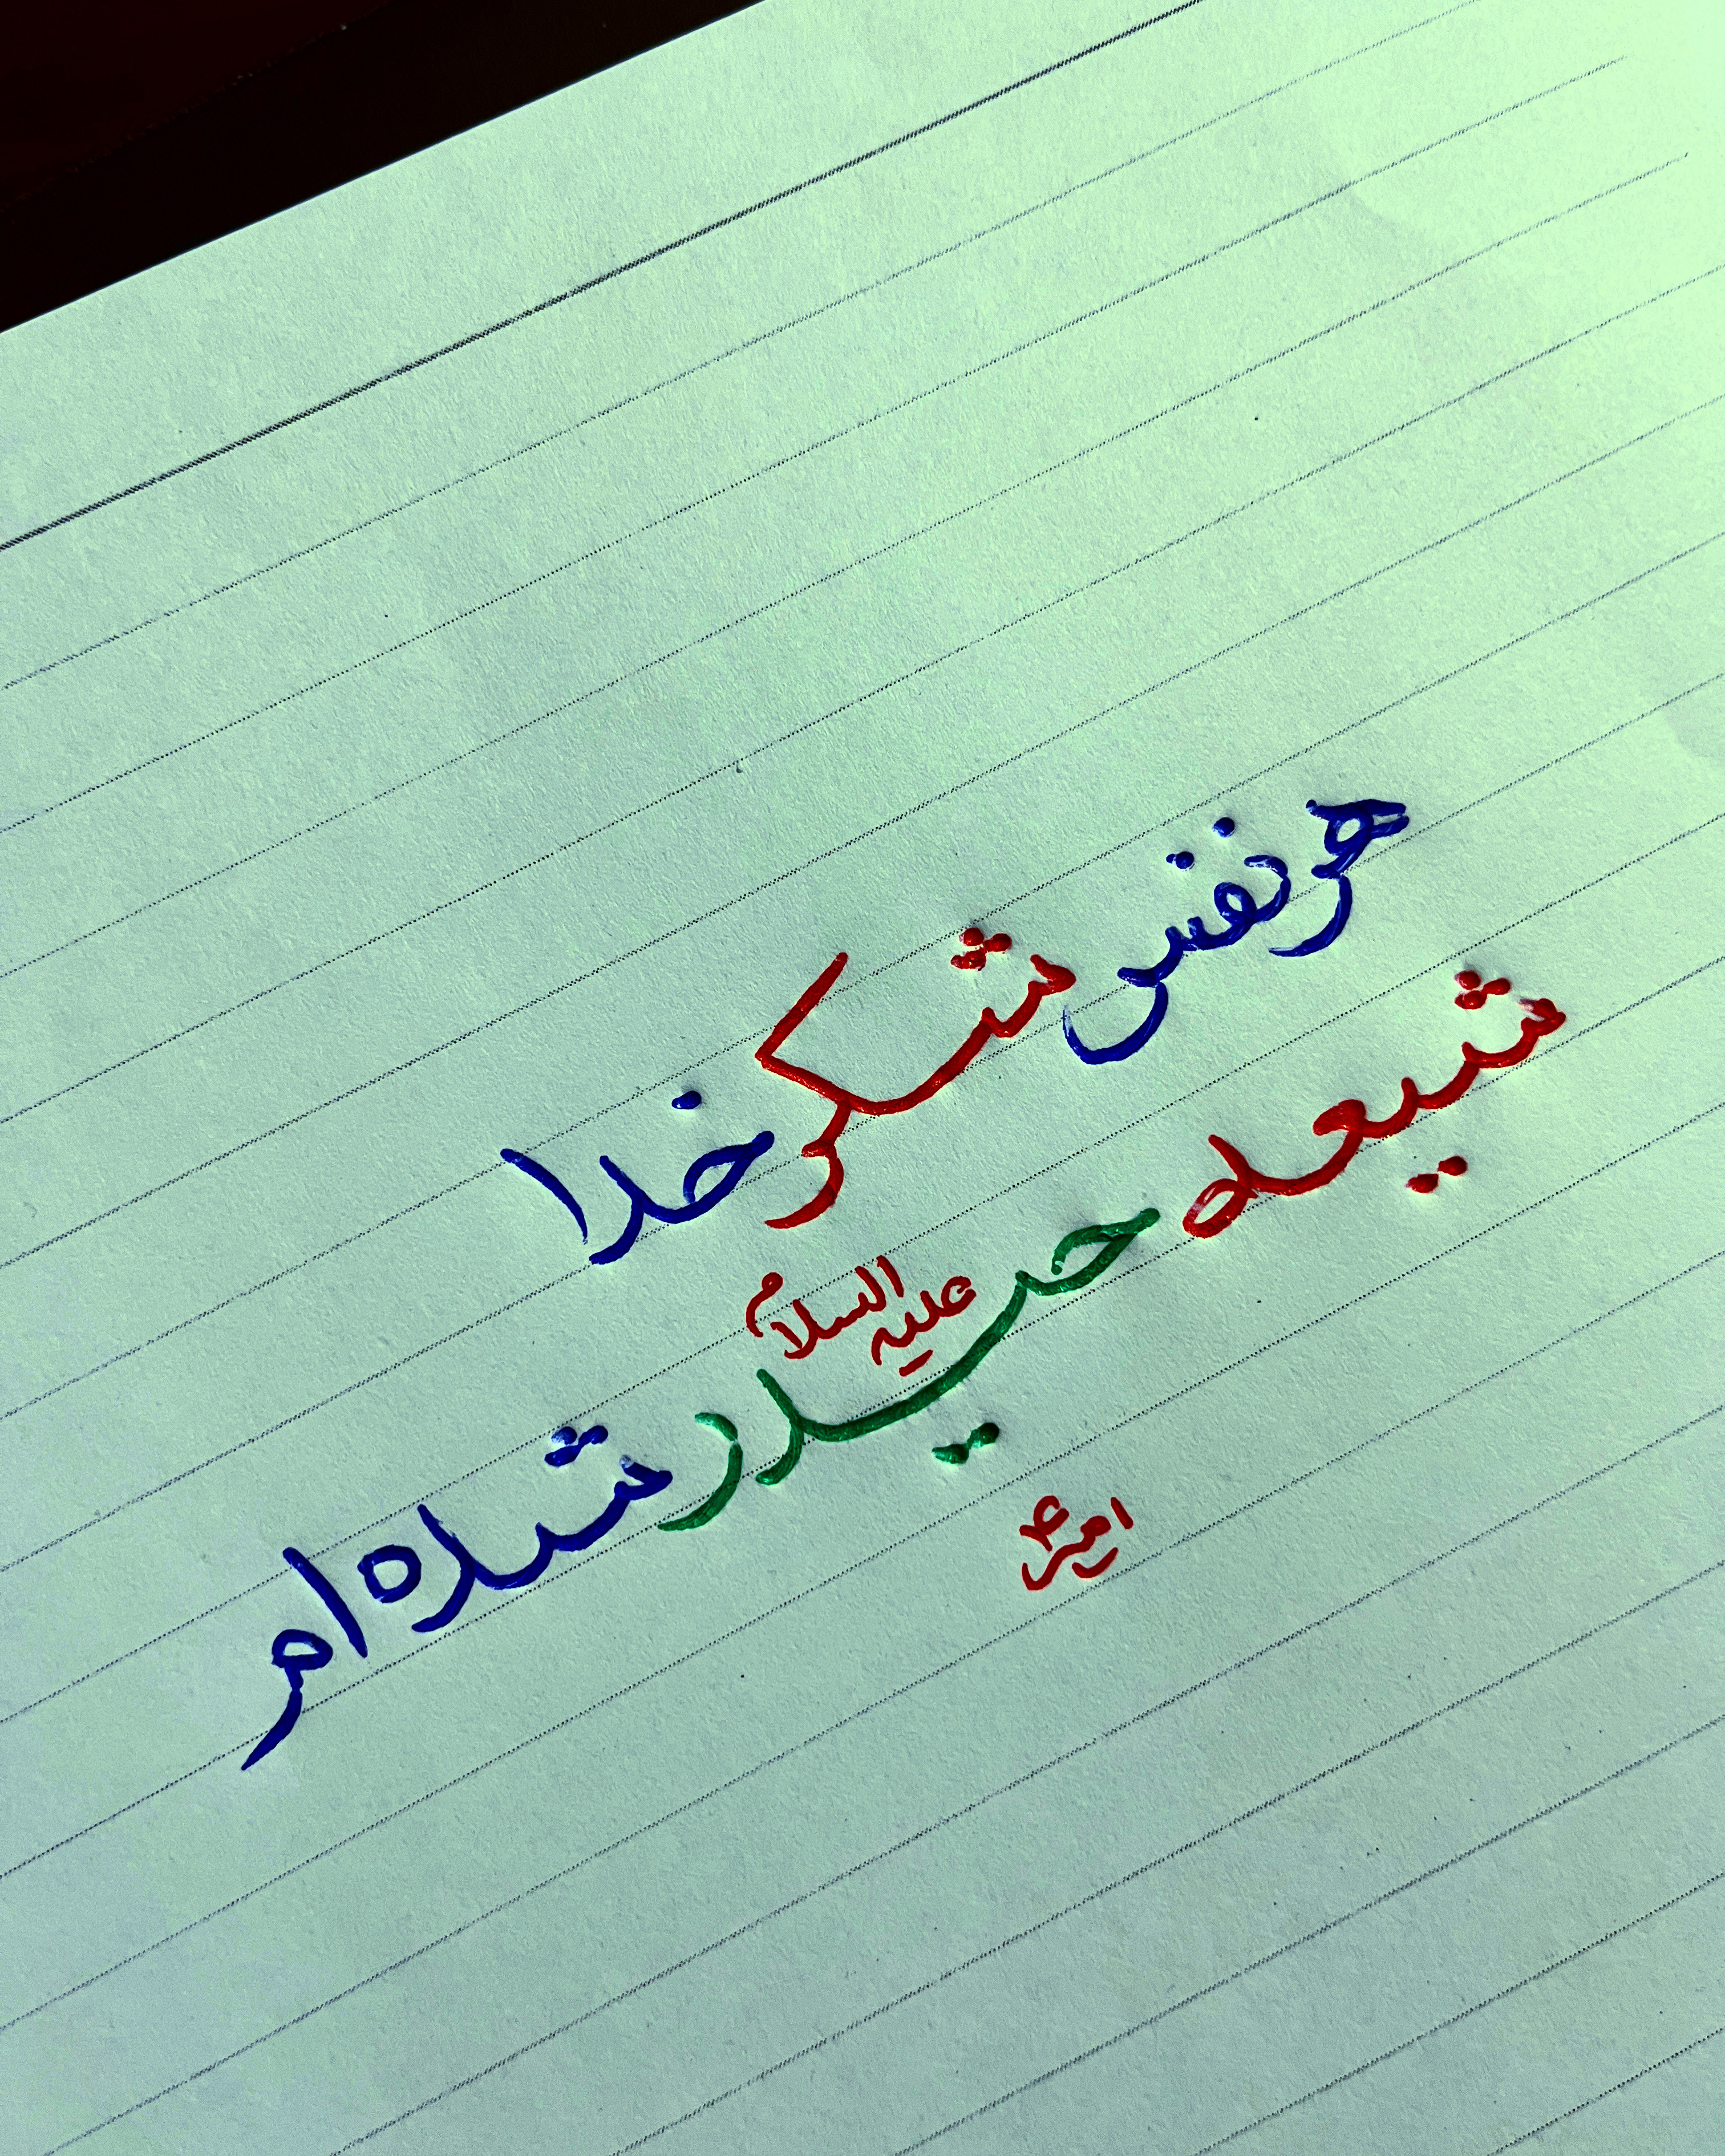 هر نفس شکر خدا
شیعه حیدر علیه السلام شده ام